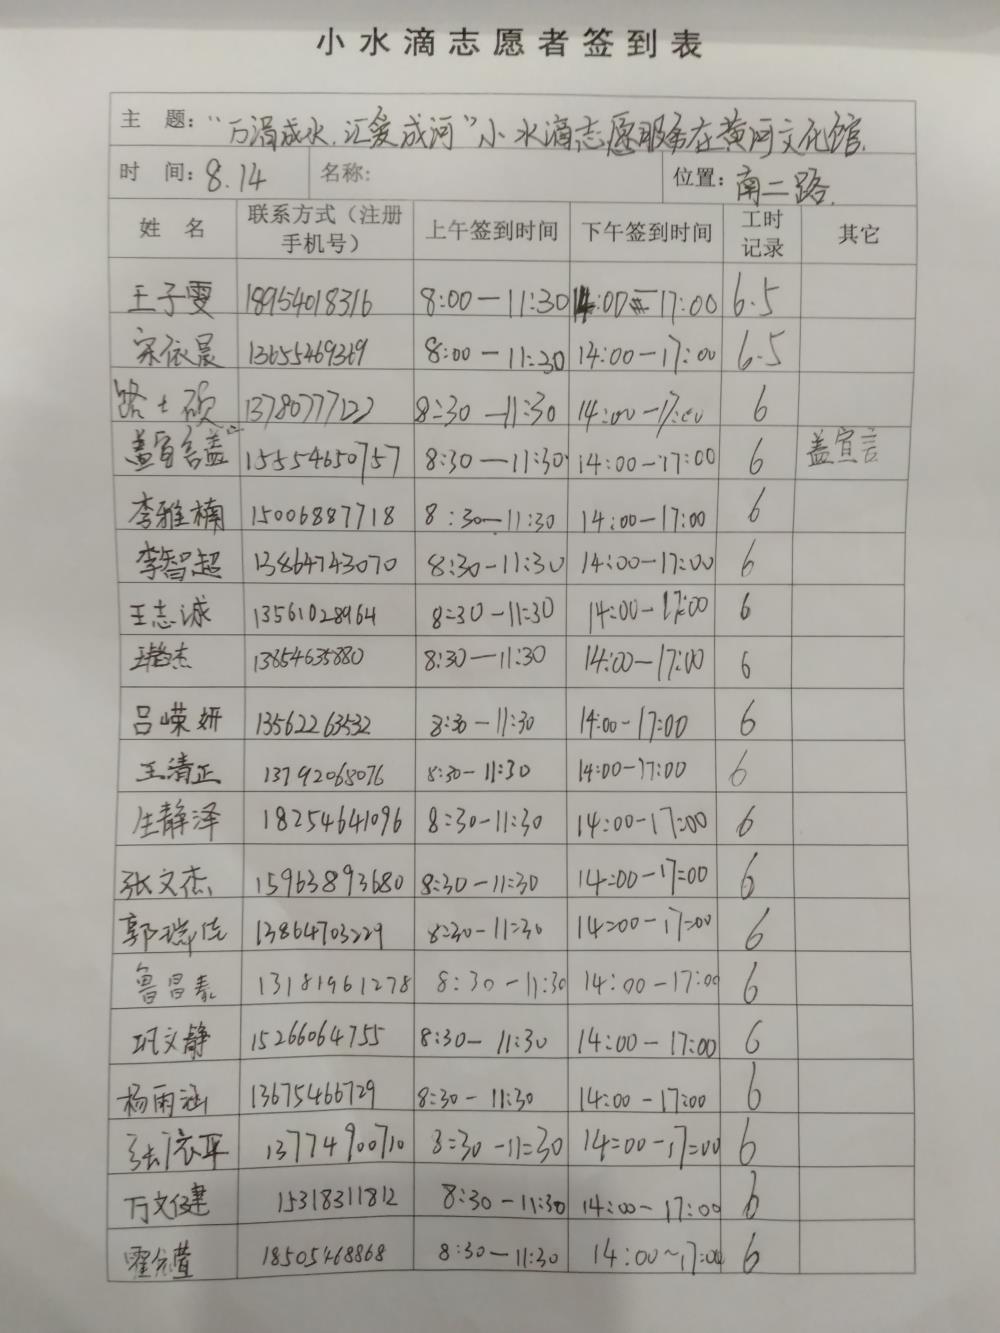 小水滴志愿者签到表
主 题: “万涓成水.汇爱成河”小水滴志愿服务在黄河文化馆.
时 间: 8.14 名称: 位置: 南二路.
姓 名 联系方式（注册手机号） 上午签到时间 下午签到时间 工时记录 其它
王子雯 18954018316 8:00—11:30 14:00—17:00 6.5
宋依晨 13655469369 8:00—11:30 14:00—17:00 6.5
路士硕 13780777122 8:30—11:30 14:00—17:00 6
15554650757 8:30—11:30 14:00—17:00 6 盖宣言
李雅楠 15006887718 8:30—11:30 14:00—17:00 6
李智超 13864743070 8:30—11:30 14:00—17:00 6
王志诚 13561028964 8:30—11:30 14:00-17:00 6
13854635880 8:30—11:30 14:00—17:00 6
吕嵘妍 13562263532 8:30—11:30 14:00-17:00 6
王清正 13792068076 8:30-11:30 14:00-17:00 6
生静泽 18254641096 8:30-11:30 14:00-17:00 6
张文杰 15963893680 8:30-11:30 14:00-17:00 6
郭瑞佳 13864703229 8:30-11:30 14:00-17:00 6
鲁昌泰 13181961278 8:30-11:30 14:00-17:00 6
巩文静 15266064755 8:30-11:30 14:00-17:00 6
杨雨涵 13675466729 8:30-11:30 14:00-17:00 6
13774900710 8:30-11:30 14:00-17:00 6
万文健 15318311812 8:30-11:30 14:00-17:00 6
18505468868 8:30-11:30 14:00~17:00 6